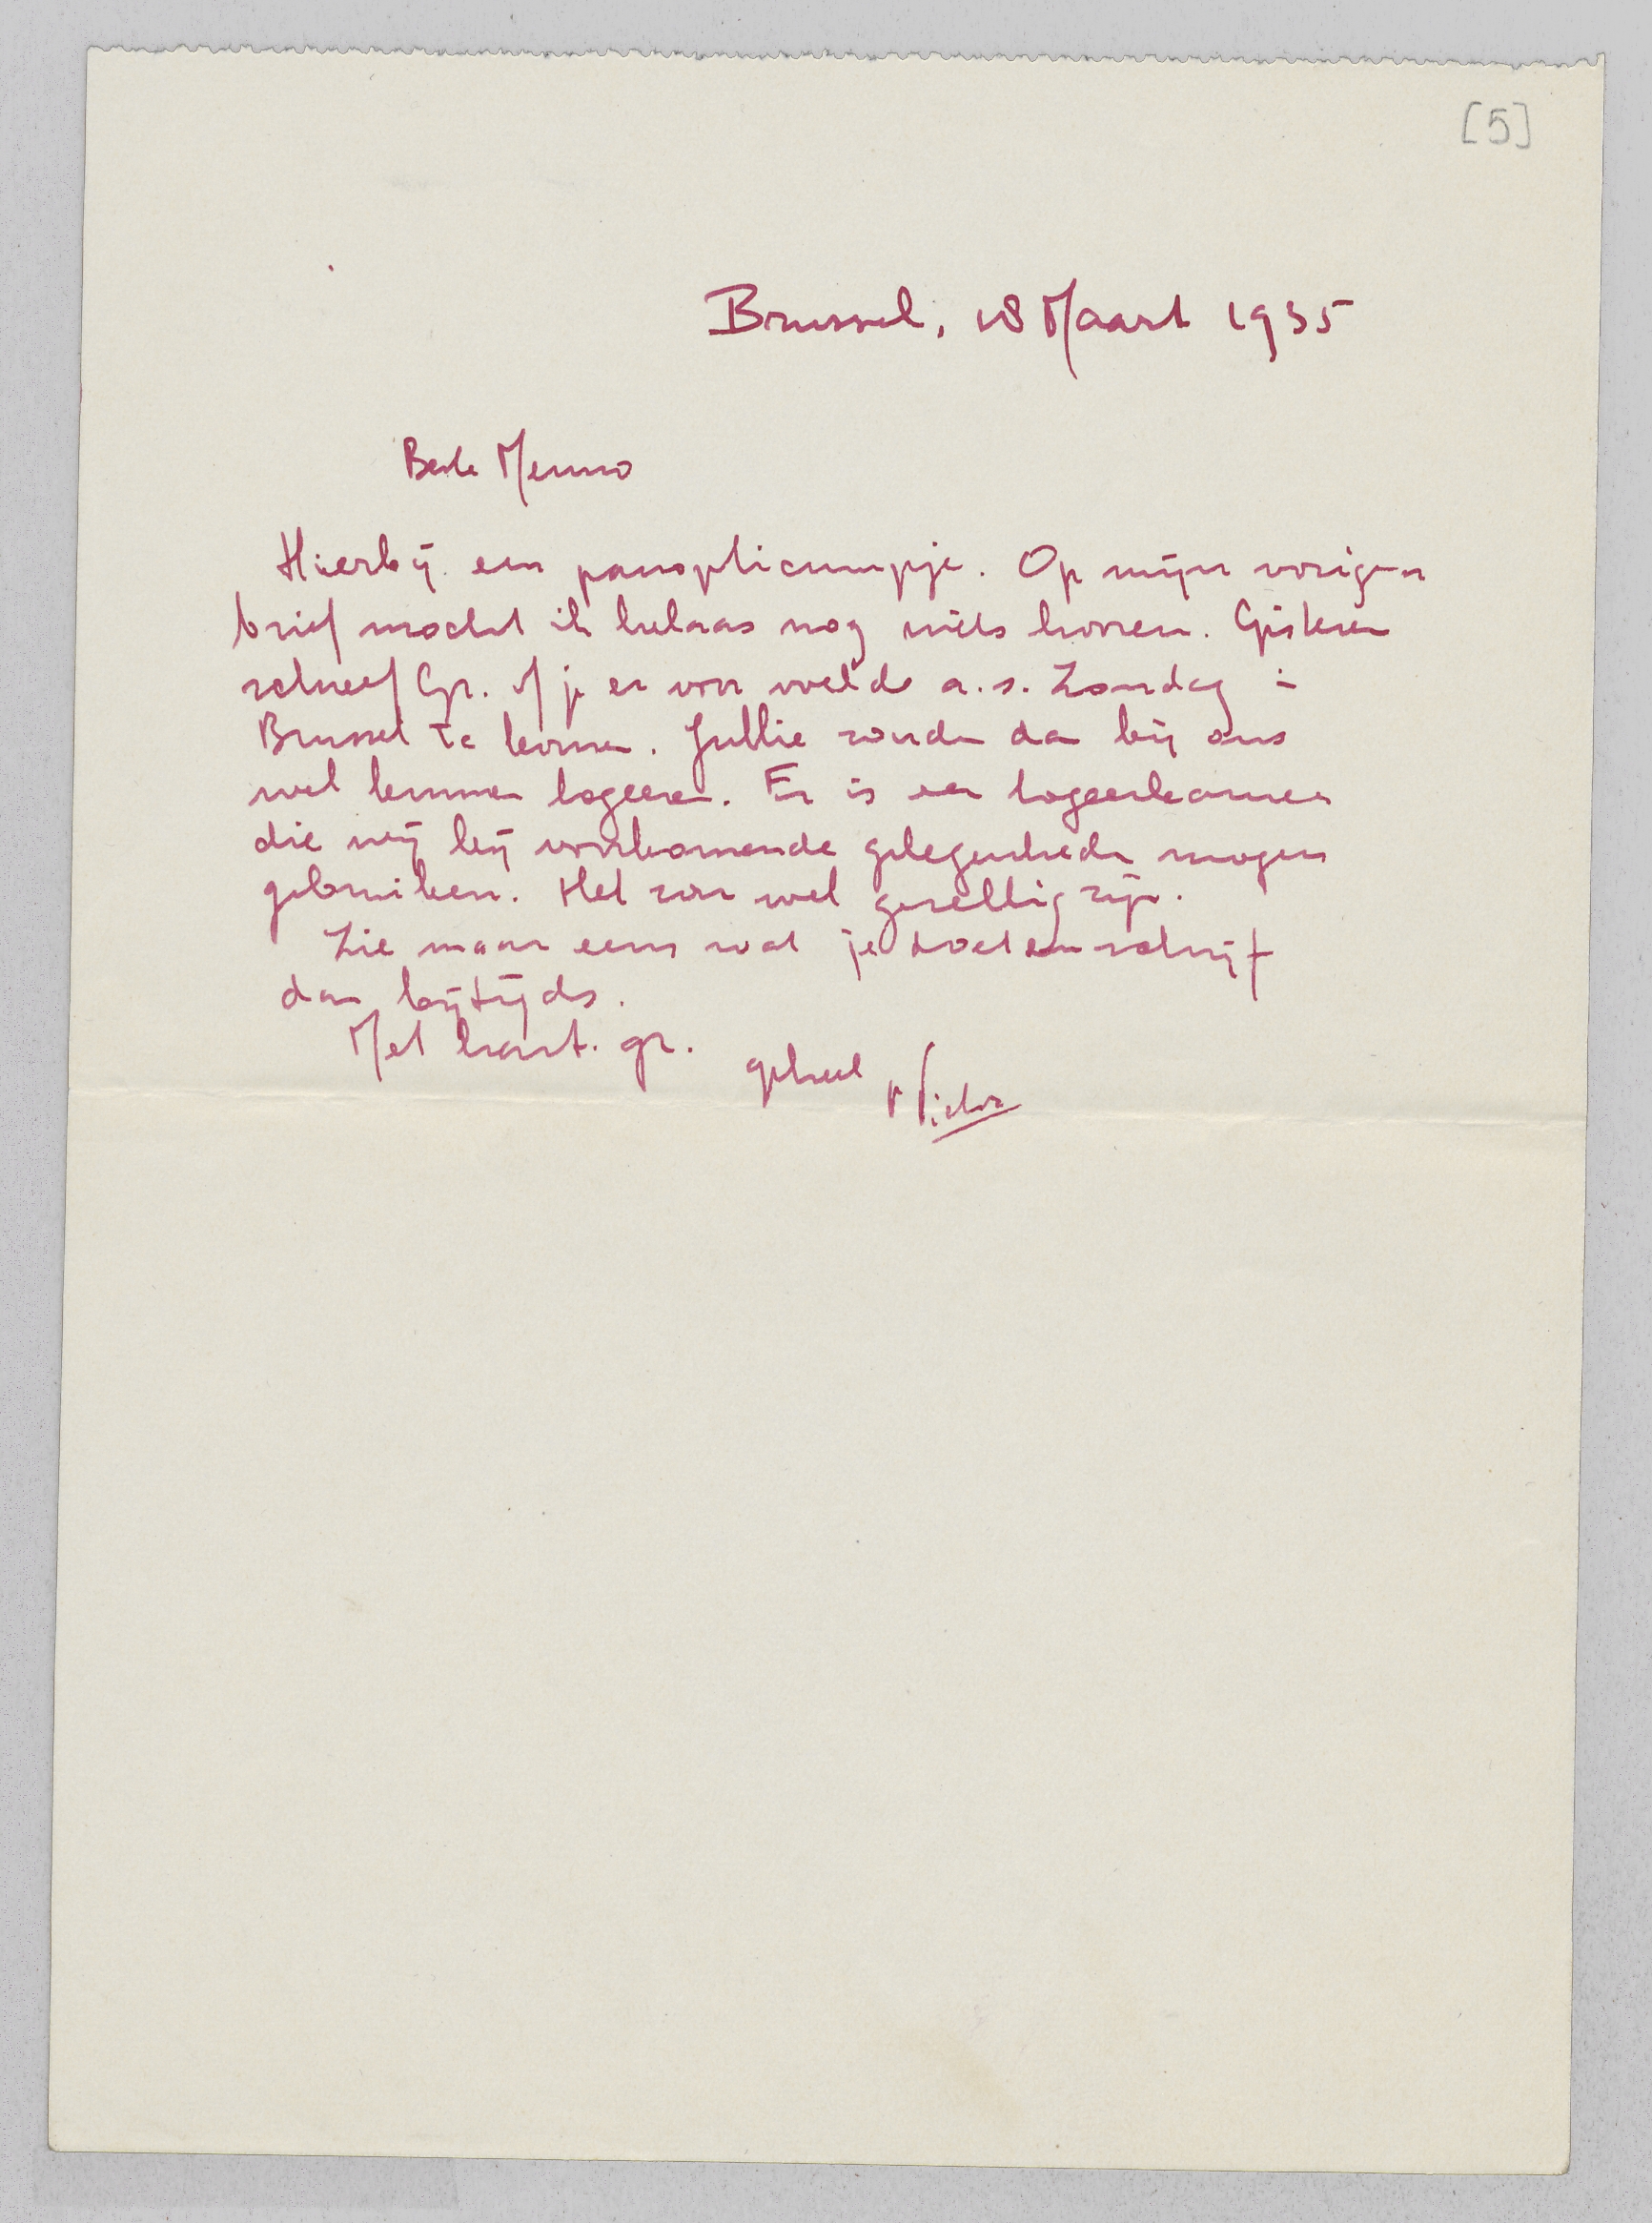 [5]
Brussel, 18 Maart 1935
Beste Menno
Hierbij een panopticumpje. Op mijn vorigen
brief mocht ik helaas nog niets hooren. Gisteren
schreef Gr. of je er voor voelde a.s. Zondag in
Brussel te komen. Jullie zouden dan bij ons
wel kunnen logeeren. Er is een logeerkamer
die wij bij voorkomende gelegenheden mogen
gebruiken. Het zou wel gezellig zijn.
Zie maar eens wat je doet en schrijf
dan bijtijds.
Met hart. gr.
geheel
Victor